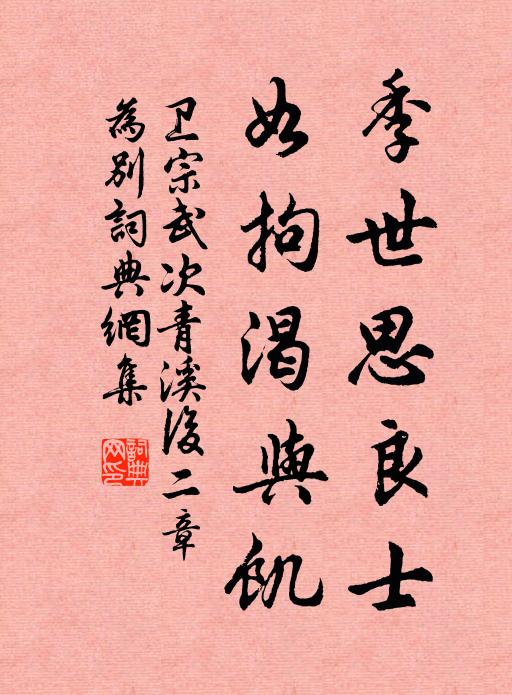 季世思良士
如拘渴與飢
卫宗武次青溪後二章
為別詞典網集
詞典网印